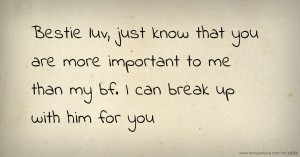 Bestie luv, just know that you
are more important to me
than my bf. I can break up
with him for you